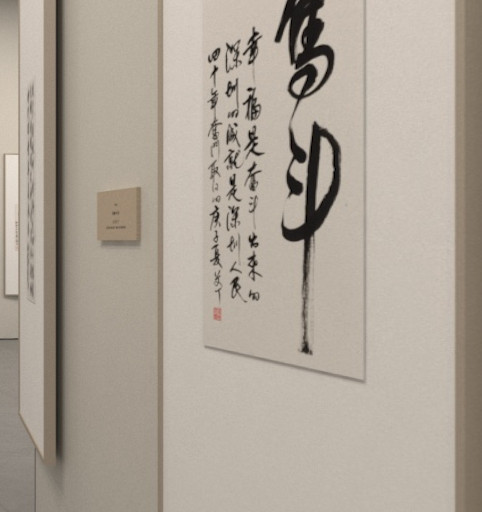 奮斗
幸福是奮斗出来的
深圳的成就是深圳人民
四十年奮鬥取得的庚子夏